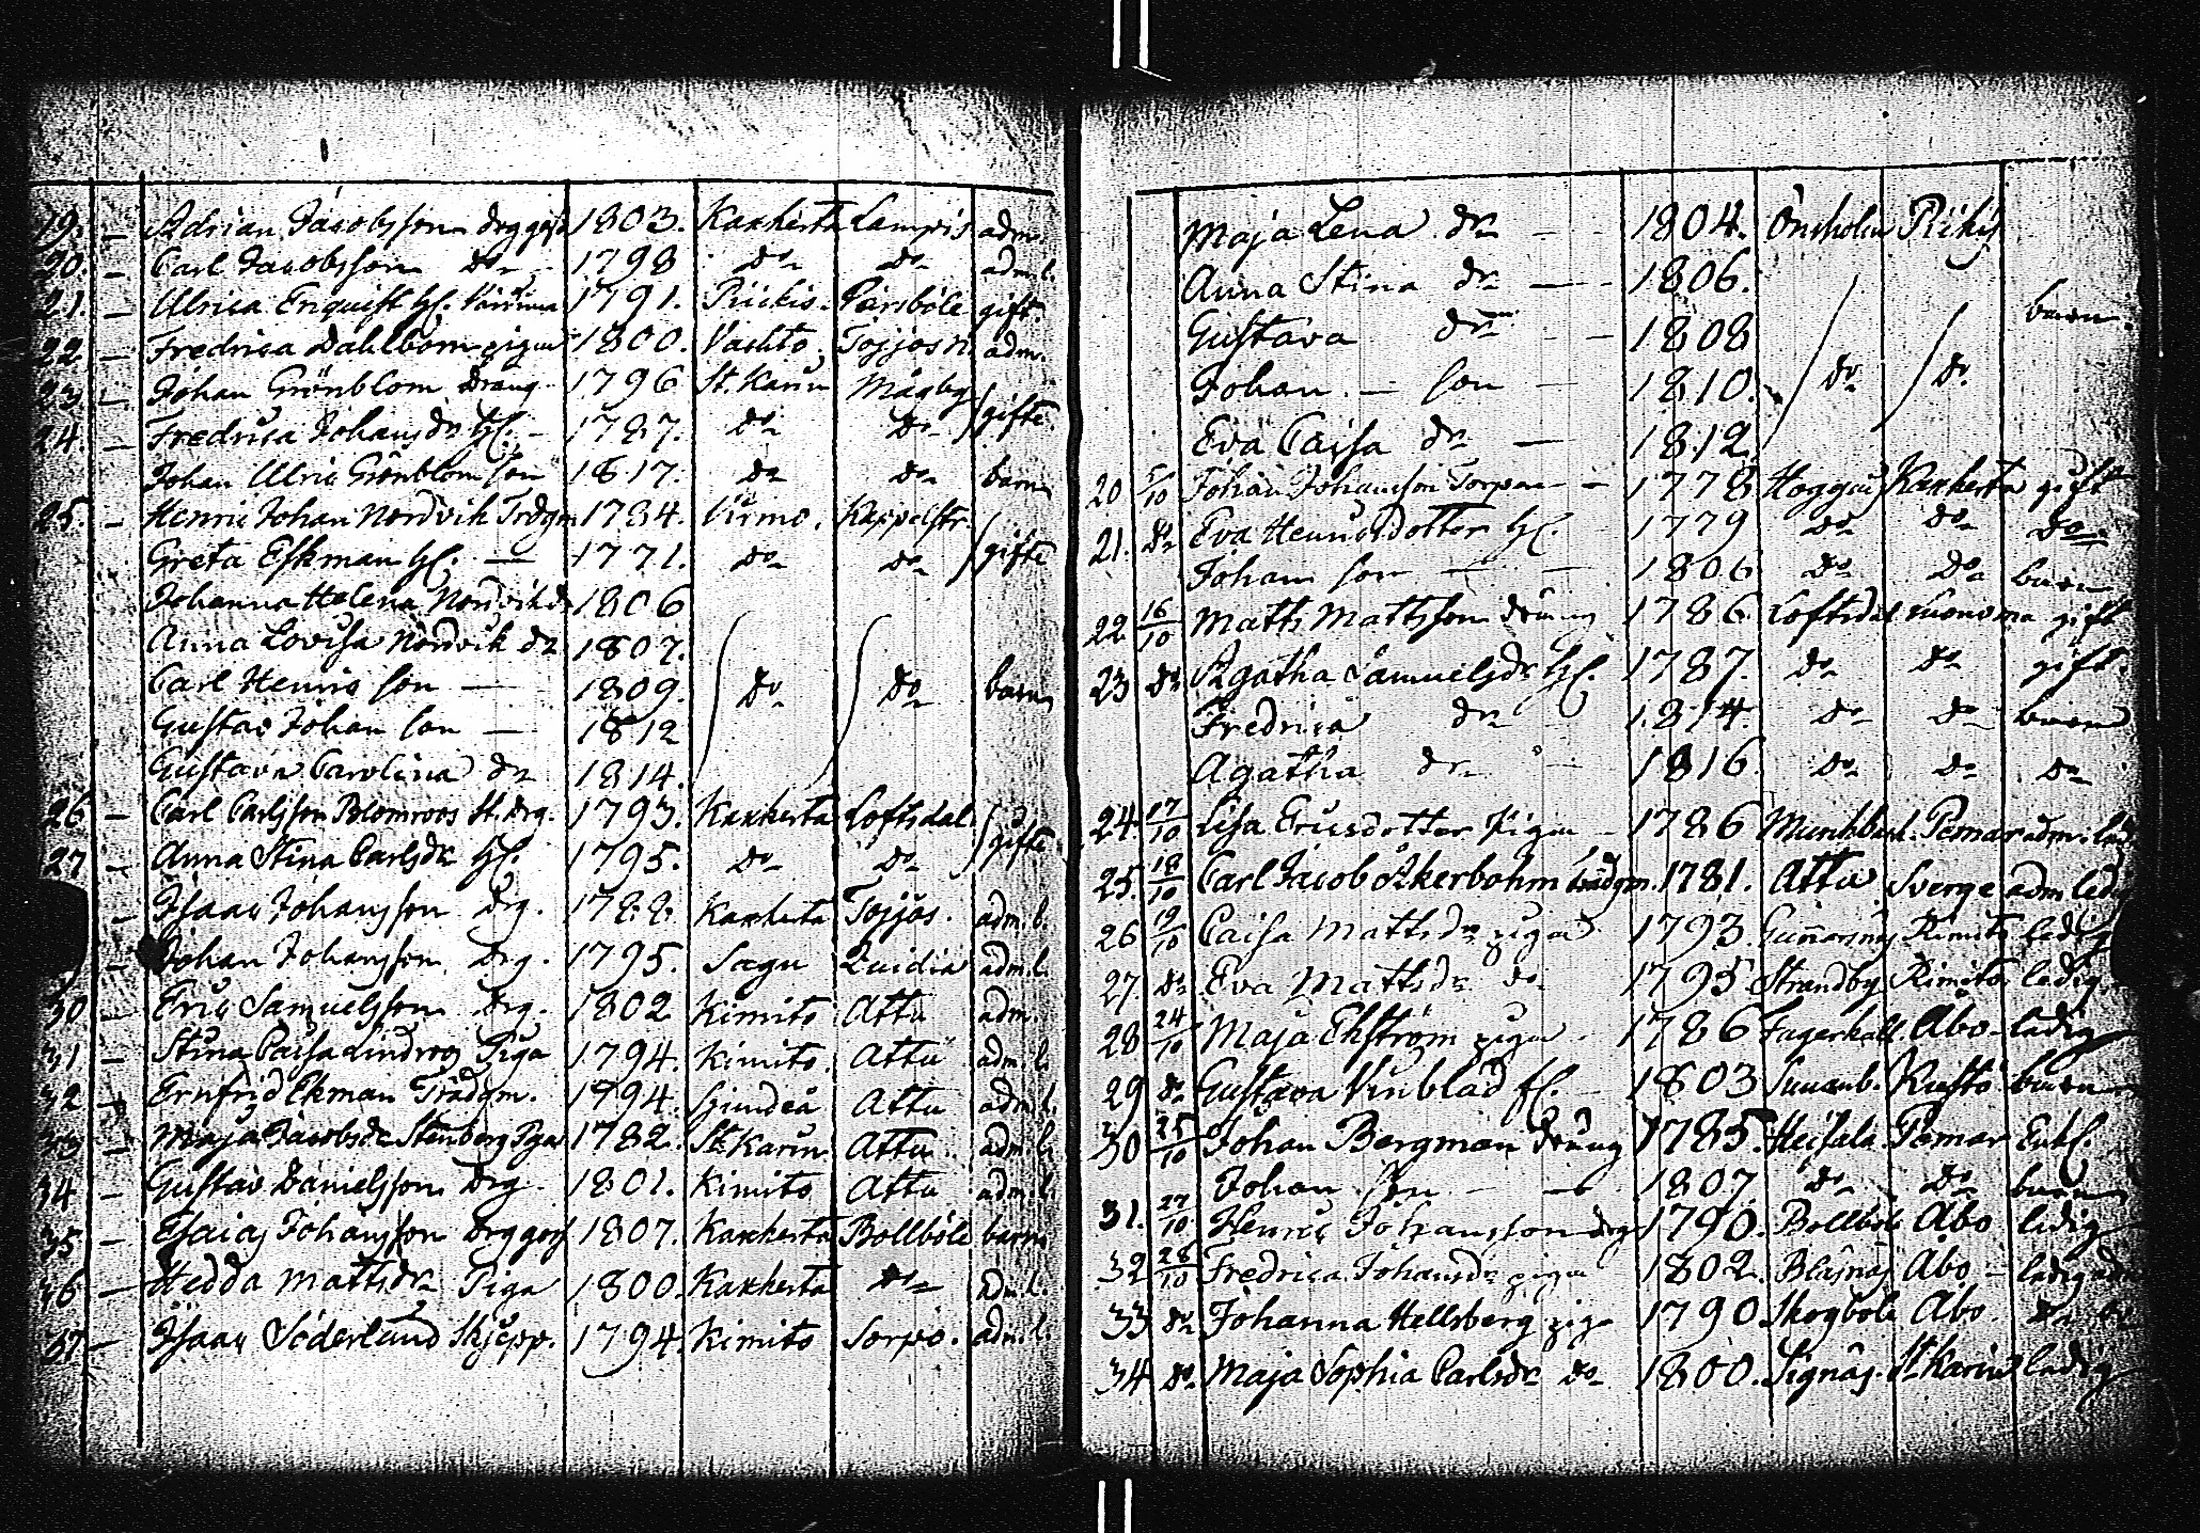 19. — Adrian Jacobsson drggoss 1803. Kaxkerta Lampis adm.
20. — Carl Jacobsson do 1798 do do adm. l.
21. — Ulrica Enquist H. 1791. Piickis. Pärsböle gift.
22 — Fredrica Dahlbom piga 1800. Vachto. Tojjosn. adm.
23. — Johan Grönblom Dräng 1796 St. Karin Mågby gifte.
24. — Fredrica Johansdr H. — 1787. do do
Johan Ulric Grönblom son 1817. dn do barn
25. — Henric Johan Nordvik Trdgm 1784. Virmo. Kappelstr. gifte
Greta Eskman H. — 1771. do do
Johanna Helena Nordvik dr 1806
Anna Lovisa Nordvik dr 1807.
Carl Henric son — 1809. do do barn
Gustav Johan son — 1812
Gustava Carolina dr 1814.
26 — Carl Carlsson Blomroos St. drg. 1793. Kaxkerta Loftsdal. gifte
27 — Anna Stina Carlsdr H. 1795. do do
— Isaac Johansson Drg. 1788. Kaxkerta Tojjos. adm. l.
— Johan Johansson Drg. 1795. Sagu Quidia adm. l.
30 — Eric Samuelsson Drg. 1802 Kimito Attu adm.
31 — Stina Caisa Lindroos Piga 1794. Kimito. Attu adm. l.
32 — Ernfrid Ekman Trädgm. 1794. Sjundeå Attu adm. l.
33 — Maja Jacobsdr Stenberg Pga 1782. St. Karin. Attu. adm. l.
34 — Gustav Danielsson Drg. 1801. Kimito Attu adm. l.
35 — Esaias Johansson Drggoss 1807. Kaxkerta Bollböle barn
36 — Hedda Mattsdr Piga 1800. Kaxkerta do adm. l.
37 — Isaac Söderlund Skjepp. 1794. Kimito Sorpo. adm. l.
Maja Lena dr — 1804. Önsholm Pikis
Anna Stina dr — 1806.
Gustava dr — 1808 barn.
Johan — son — 1810. do do
Eva Caisa dr — 1812.
20 5/10 Johan Johansson Torpare — 1778 Haggais Kaxkerta gift
21. do Eva Henricsdotter H. 1779 do do do
Johan son — 1806 do do barn
22 16/10 Matts Mattsson dräng 1786. Loftsdal gift
23 do Agatha Samuelsdr H. 1787. do do gift.
Fredrica dr 1814. do do barn
Agatha dr — 1816 do do do
24. 17/10 Lisa Ericsdotter Piga — 1786 Munkback. Pemar adm. led.
25. 18/10 Carl Jacob Åkerbohm trädgm. 1781. Attu Sverge adm led.
26 19/10 Caisa Mattsdr piga 1793. Gunnarsnäs Kimito ledig
27. do Eva Mattsdr do 1795 Strandby Kimito. ledig.
28 24/10 Maja Ekström piga 1786 Fagerkall. Åbo. ledig
29 do Gustava Vinblad fl. 1803 Kustö barn
30 25/10 Johan Bergman dräng 1785. Heisala Pemar Enkl.
Johan son — 1807 do do barn
31. 27/10 Henric Johansson drg 1790. Bollböle Åbo ledig
32 28/10 Fredrica Johansdr piga 1802. Blåsnäs Åbo — ledig adm
33 do Johanna Hellsberg piga 1790 Skogböle Åbo. do do
34 do. Maja Sophia Carlsdr do 1800. Signäs. St. Karin ledig